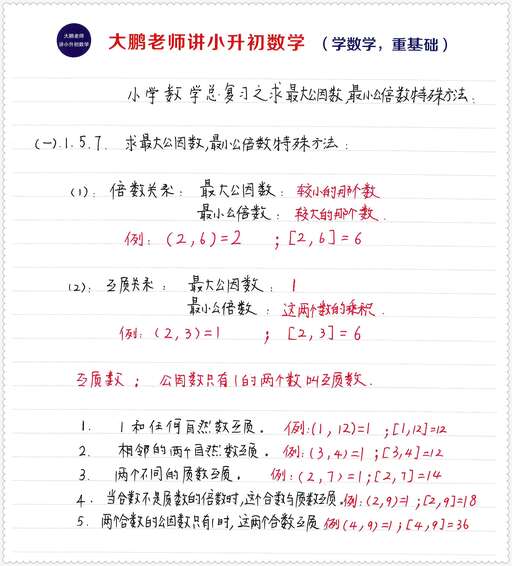 大鹏老师
讲小升初数学
大鹏老师讲小升初数学 （学数学，重基础）
小学数学总复习之求最大公因数,最小公倍数特殊方法:
(一).1.5.7. 求最大公因数,最小公倍数特殊方法:
(1): 倍数关系: 最大公因数: 较小的那个数
最小公倍数: 较大的那个数.
例: (2,6)=2 ;[2,6]=6
(2): 互质关系: 最大公因数: 1
最小公倍数: 这两个数的乘积.
例: (2,3)=1 ; [2,3]=6
互质数; 公因数只有1的两个数叫互质数.
1. 1和任何自然数互质。 例:(1,12)=1 ;[1,12]=12
2. 相邻的两个自然数互质。 例:(3,4)=1 ;[3,4]=12
3. 两个不同的质数互质。 例:(2,7)=1;[2,7]=14
4. 当合数不是质数的倍数时,这个合数与质数互质.例:(2,9)=1 ;[2,9]=18
5. 两个合数的公因数只有1时,这两个合数互质 例(4,9)=1;[4,9]=36